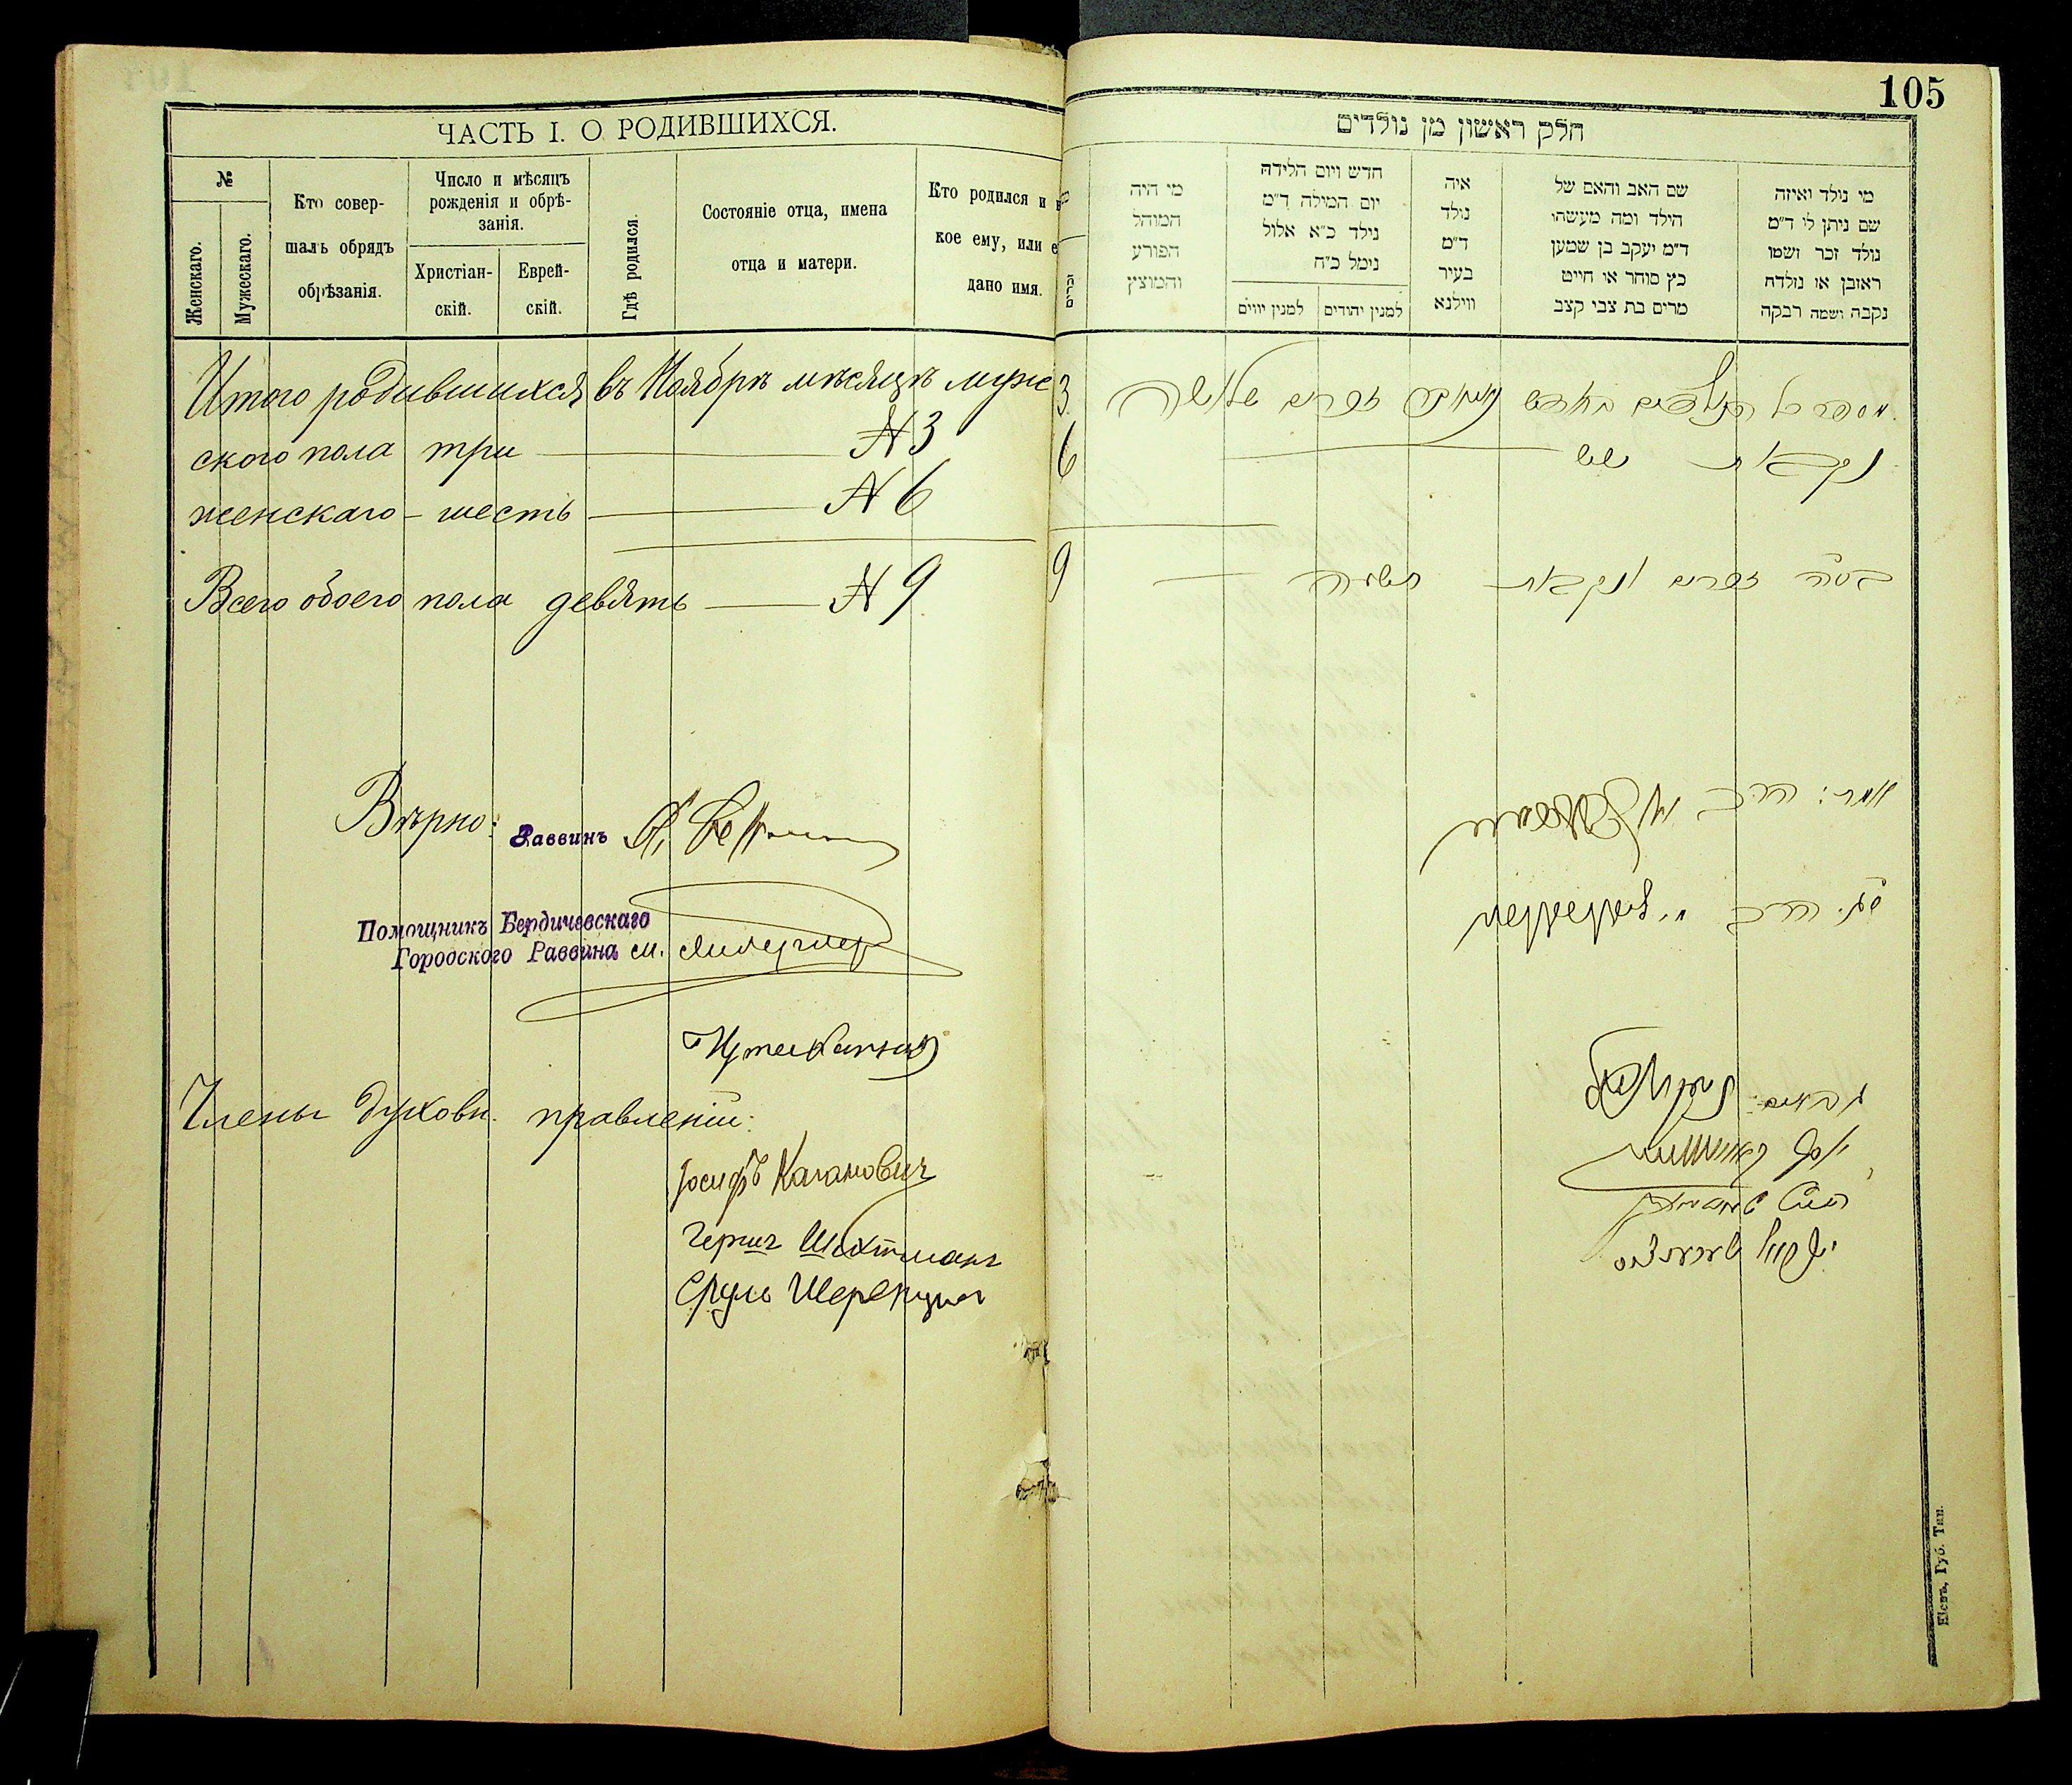 105
ЧАСТЬ I. О РОДИВШИХСЯ.
№
Женскаго.
Мужескаго.
Кто совер-
шалъ обрядъ
обрѣзанія.
Число и мѣсяцъ
рожденія и обрѣ-
занія.
Христіан-
скій.
Еврей-
скій.
Гдѣ родился.
Состояніе отца, имена
отца и матери.
Кто родился и
кое ему, или е
дано имя.
Итого родившихся въ Ноябрѣ мѣсяцѣ муже
ского пола три — № 3
женскаго - шесть — № 6
Всего обоего пола девять — № 9
Вѣрно:
Раввинъ
Помощникъ Бердичевскаго
Городского Раввина
Члены духовн. правленіи:
Іосифъ Кагановичъ
Гершъ Шихтманъ
Сруль
חלק ראשון מן נולדים
מי נולד ואיזה
שם ניתן לי ד"מ
נולד זכר ושמו
ראובן או נולדה
נקבה ושמה רבקה
שם האב והאם של
הילד ומה מעשהו
ד"מ יעקב בן שמעון
כץ סוחר או חייט
מרים בת צבי קצב
איה
נולד
ד"מ
בעיר
ווילנא
חדש ויום הלידה
יום המילה ד"מ
נילד כ"א אלול
נימל כ"ח
למנין יהודים
למנין יווים
מי היה
המוהל
הפורע
והמוצץ
זכרים
3 מספר הנולדים בחדש זכרים שלשה
6 נקבות שש
9 בס"ה זכרים ונקבות תשעה
הרב
הרב
Кіевъ, Губ. Тип.